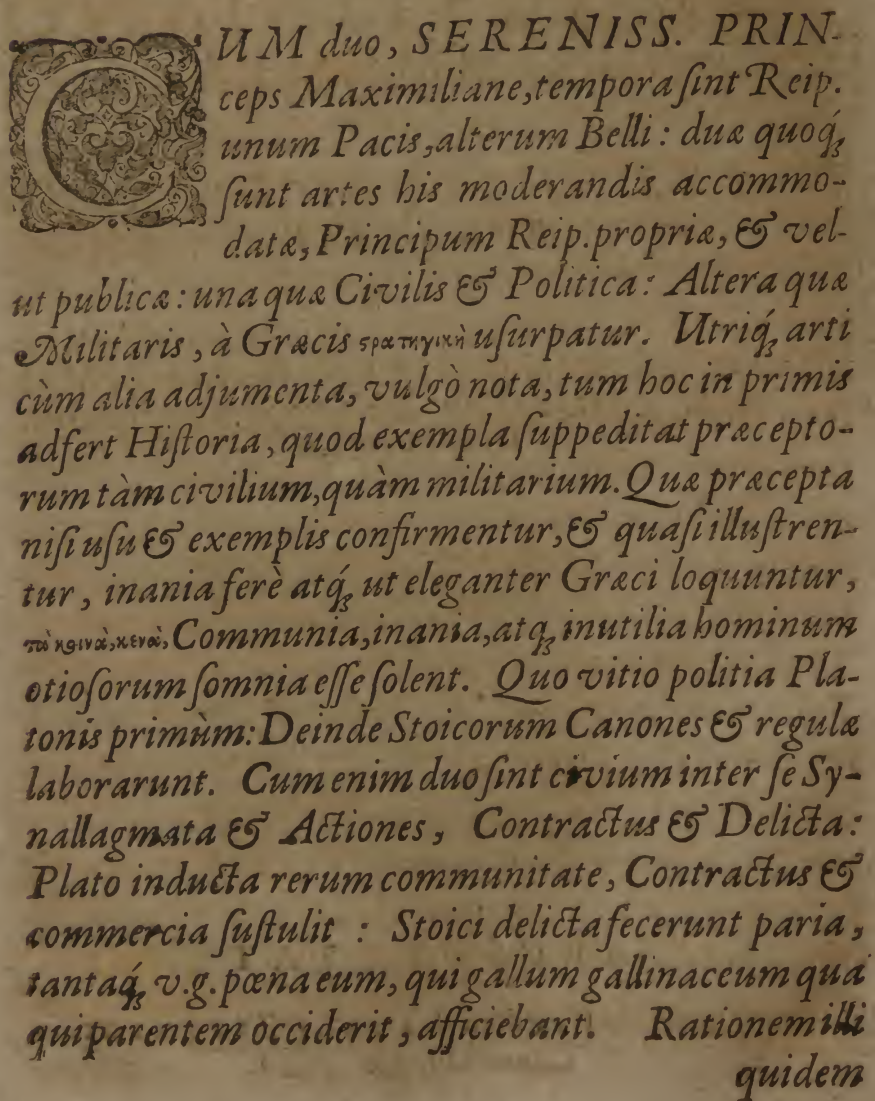 CUM duo, SERENISS. PRIN-
ceps Maximiliane, tempora ſint Reip.
unum Pacis, alterum Belli: duæ quoq́;
ſunt artes his moderandis accommo-
datæ, Principum Reip. propriæ, & vel-
ut publicæ: una quæ Civilis & Politica: Altera quæ
Militaris, à Græcis ϛρατηγικὴ uſurpatur. Utriq́; arti
cùm alia adjumenta, vulgò nota, tum hoc in primis
adfert Hiſtoria, quod exempla ſuppeditat præcepto-
rum tàm civilium, quàm militarium. Quæ præcepta
niſi uſu & exemplis confirmentur, & quaſi illuſtren-
tur, inania ferè atq́; ut eleganter Græci loquuntur,
τὰ κοινὰ, κενὰ, Communia, inania, atq; inutilia hominum
otioſorum ſomnia eſſe ſolent. Quo vitio politia Pla-
tonis primùm: Deinde Stoicorum Canones & regulæ
laborarunt. Cum enim duo ſint civium inter ſe Sy-
nallagmata & Actiones, Contractus & Delicta:
Plato inducta rerum communitate, Contractus &
commercia ſuſtulit : Stoici delicta fecerunt paria,
tantaq́; v.g. pœna eum, qui gallum gallinaceum qua
qui parentem occiderit, afficiebant. Rationem illi
quidem